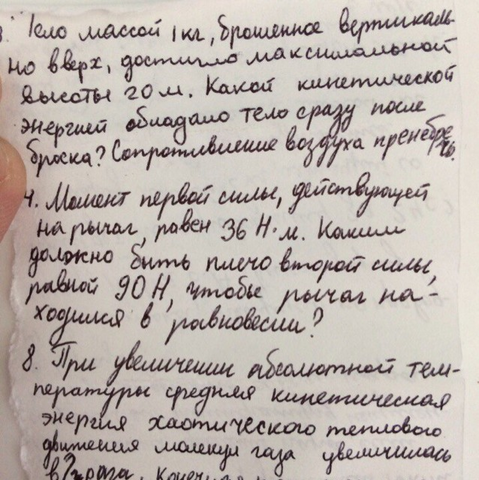 3. Тело массой 1 кг, брошенное вертикаль-
но вверх, достигло максимальной
высоты 20 м. Какой кинетической
энергией обладало тело сразу после
броска? Сопротивление воздуха пренебречь.
4. Момент первой силы, действующей
на рычаг, равен 36 Н·м. Каким
должно быть плечо второй силы,
равной 90 Н, чтобы рычаг на-
ходился в равновесии?
8. При увеличении абсолютной тем-
пературы средняя кинетическая
энергия хаотического теплового
движения молекул газа увеличилась
в 2 раза.